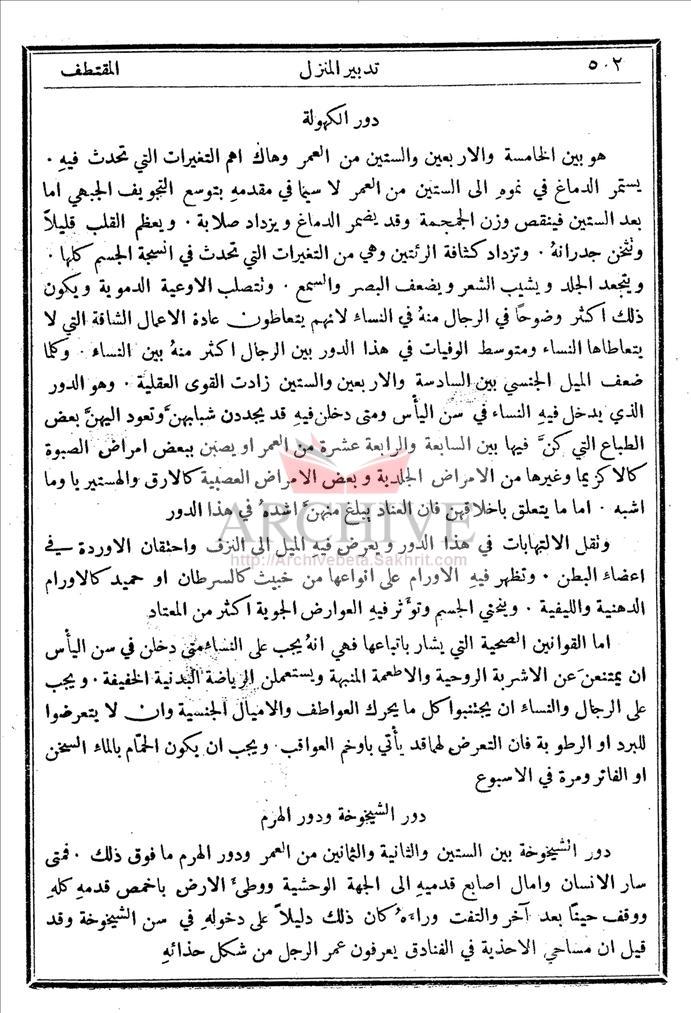 ٥٠٢ تدبير المنزل المقتطف
دور الكهولة
هو بين الخامسة والاربعين والستين من العمر وهاك اهم التغيرات التي تحدث فيهِ ٠
يستمر الدماغ في نموهِ الى الستين من العمر لا سيما في مقدمهِ بتوسع التجويف الجبهي اما
بعد الستين فينقص وزن الجمجمة وقد يضمر الدماغ ويزداد صلابة ٠ ويعظم القلب قليلاً
وتثخن جدرانهُ ٠ وتزداد كثافة الرئتين وهي من التغيرات التي تحدث في انسجة الجسم كلها ٠
ويتجعد الجلد ويشيب الشعر ويضعف البصر والسمع ٠ وتتصلب الاوعية الدموية ويكون
ذلك اكثر وضوحًا في الرجال منهُ في النساء لانهم يتعاطون عادة الاعمال الشاقة التي لا
يتعاطاها النساء ومتوسط الوفيات في هذا الدور بين الرجال اكثر منهُ بين النساء ٠ وكلما
ضعف الميل الجنسي بين السادسة والاربعين والستين زادت القوى العقلية ٠ وهو الدور
الذي يدخل فيهِ النساء في سن اليأس ومتى دخلن فيهِ قد يجددن شبابهنَّ وتعود اليهنَّ بعض
الطباع التي كنَّ فيها بين السابعة والرابعة عشرة من العمر او يصبن ببعض امراض الصبوة
كالاكزيما وغيرها من الامراض الجلدية وبعض الامراض العصبية كالارق والهستيريا وما
اشبه ٠ اما ما يتعلق باخلاقهن فان العناد يبلغ منهنَّ اشدهُ في هذا الدور
ARCHIVE
http://Archivebeta.Sakhrit.com
وتقل الالتهابات في هذا الدور ويعرض فيهِ الميل الى النزف واحتقان الاوردة في
اعضاء البطن ٠ وتظهر فيهِ الاورام على انواعها من خبيث كالسرطان او حميد كالاورام
الدهنية والليفية ٠ وينحني الجسم وتؤثر فيهِ العوارض الجوية اكثر من المعتاد
اما القوانين الصحية التي يشار باتباعها فهي انهُ يجب على النساء متى دخلن في سن اليأس
ان يمتنعن عن الاشربة الروحية والاطعمة المنبهة ويستعملن الرياضة البدنية الخفيفة ٠ ويجب
على الرجال والنساء ان يجتنبوا كل ما يحرك العواطف والاميال الجنسية وان لا يتعرضوا
للبرد او الرطوبة فان التعرض لهما قد يأتي باوخم العواقب ٠ ويجب ان يكون الحمّام بالماء السخن
او الفاتر ومرة في الاسبوع
دور الشيخوخة ودور الهرم
دور الشيخوخة بين الستين والثانية والثمانين من العمر ودور الهرم ما فوق ذلك ٠ فمتى
سار الانسان وامال اصابع قدميهِ الى الجهة الوحشية ووطىءَ الارض باخمص قدمهِ كلهِ
ووقف حينًا بعد آخر والتفت وراءهُ كان ذلك دليلاً على دخولهِ في سن الشيخوخة وقد
قيل ان مساحي الاحذية في الفنادق يعرفون عمر الرجل من شكل حذائهِ